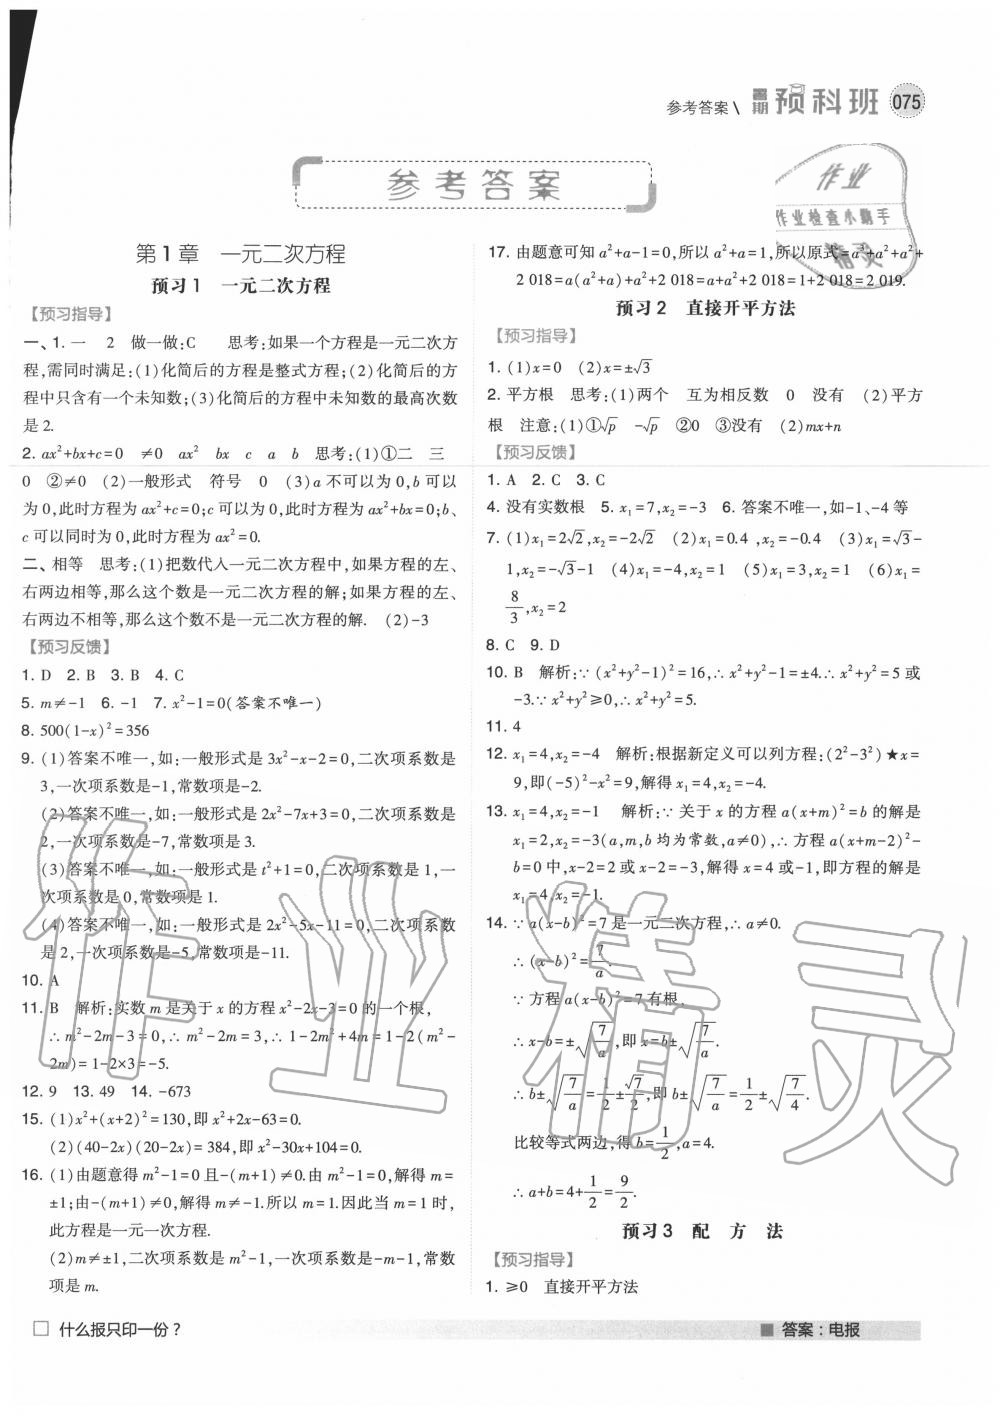 参考答案\ 暑期 预科班 075
参考答案
作业
作业检查小助手
精灵
第1章 一元二次方程
预习1 一元二次方程
【预习指导】
一、1. 一 2 做一做:C 思考:如果一个方程是一元二次方
程,需同时满足:(1)化简后的方程是整式方程;(2)化简后的方
程中只含有一个未知数;(3)化简后的方程中未知数的最高次数
是 2.
2. ax²+bx+c=0 ≠0 ax² bx c a b 思考:(1)①二 三
0 ②≠0 (2)一般形式 符号 0 (3)a 不可以为 0,b 可以
为 0,此时方程为 ax²+c=0;c 可以为 0,此时方程为 ax²+bx=0;b、
c 可以同时为 0,此时方程为 ax²=0.
二、相等 思考:(1)把数代入一元二次方程中,如果方程的左、
右两边相等,那么这个数是一元二次方程的解;如果方程的左、
右两边不相等,那么这个数不是一元二次方程的解. (2)-3
【预习反馈】
1. D 2. B 3. B 4. C
5. m≠-1 6. -1 7. x²-1=0(答案不唯一)
8. 500(1-x)²=356
9. (1)答案不唯一,如:一般形式是 3x²-x-2=0,二次项系数是
3,一次项系数是-1,常数项是-2.
(2)答案不唯一,如:一般形式是 2x²-7x+3=0,二次项系数是
2,一次项系数是-7,常数项是 3.
(3)答案不唯一,如:一般形式是 t²+1=0,二次项系数是 1,一
次项系数是 0,常数项是 1.
(4)答案不唯一,如:一般形式是 2x²-5x-11=0,二次项系数
是 2,一次项系数是-5,常数项是-11.
10. A
11. B 解析:实数 m 是关于 x 的方程 x²-2x-3=0 的一个根,
∴m²-2m-3=0,∴m²-2m=3,∴1-2m²+4m=1-2(m²-
2m)=1-2×3=-5.
12. 9 13. 49 14. -673
15. (1)x²+(x+2)²=130,即 x²+2x-63=0.
(2)(40-2x)(20-2x)=384,即 x²-30x+104=0.
16. (1)由题意得 m²-1=0 且-(m+1)≠0.由 m²-1=0,解得 m=
±1;由-(m+1)≠0,解得 m≠-1.所以 m=1.因此当 m=1 时,
此方程是一元一次方程.
(2)m≠±1,二次项系数是 m²-1,一次项系数是-m-1,常数
项是 m.
17. 由题意可知 a²+a-1=0,所以 a²+a=1,所以原式=a³+a²+a²+
2 018=a(a²+a)+a²+2 018=a+a²+2 018=1+2 018=2 019.
预习2 直接开平方法
【预习指导】
1. (1)x=0 (2)x=±√3
2. 平方根 思考:(1)两个 互为相反数 0 没有 (2)平方
根 注意:(1)①√p -√p ②0 ③没有 (2)mx+n
【预习反馈】
1. A 2. C 3. C
4. 没有实数根 5. x₁=7,x₂=-3 6. 答案不唯一,如-1、-4 等
7. (1)x₁=2√2,x₂=-2√2 (2)x₁=0.4 ,x₂=-0.4 (3)x₁=√3-
1,x₂=-√3-1 (4)x₁=-4,x₂=1 (5)x₁=3,x₂=1 (6)x₁=
8/3,x₂=2
8. C 9. D
10. B 解析:∵(x²+y²-1)²=16,∴x²+y²-1=±4.∴x²+y²=5 或
-3.∵x²+y²≥0,∴x²+y²=5.
11. 4
12. x₁=4,x₂=-4 解析:根据新定义可以列方程:(2²-3²)★x=
9,即(-5)²-x²=9,解得 x₁=4,x₂=-4.
13. x₁=4,x₂=-1 解析:∵关于 x 的方程 a(x+m)²=b 的解是
x₁=2,x₂=-3(a,m,b 均为常数,a≠0),∴方程 a(x+m-2)²-
b=0 中,x-2=2 或 x-2=-3,解得 x=4 或-1,即方程的解是
x₁=4,x₂=-1.
14. ∵a(x-b)²=7 是一元二次方程,∴a≠0.
∴(x-b)²=7/a.
∵方程 a(x-b)²=7 有根,
∴x-b=±√(7/a),即 x=b±√(7/a).
∴b±√(7/a)=1/2±√7/2,即 b±√(7/a)=1/2±√(7/4).
比较等式两边,得 b=1/2,a=4.
∴a+b=4+1/2=9/2.
预习3 配方法
【预习指导】
1. ≥0 直接开平方法
□ 什么报只印一份？
■ 答案：电报
作业精灵